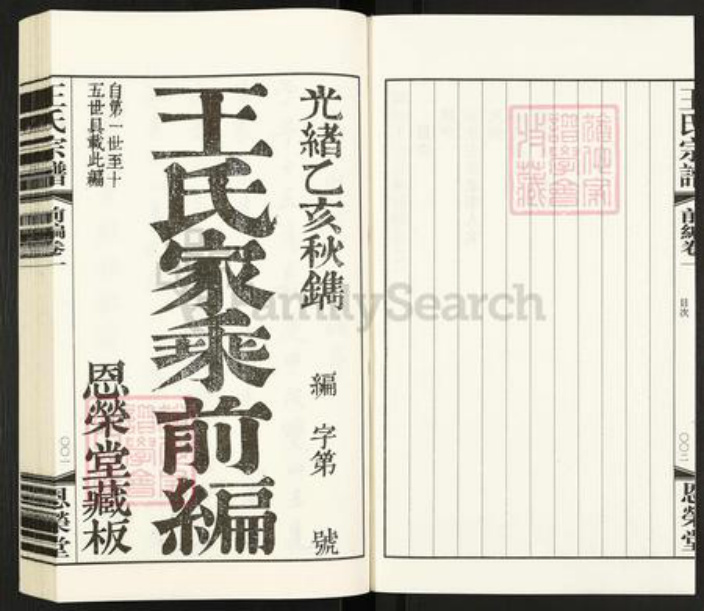 光緒乙亥秋鐫
編 字第 號
王氏家乘前編
自第一世至十
五世具載此編
恩榮堂藏板
王氏宗譜
前編卷一
〇〇一
恩榮堂
王氏宗譜
前編卷一
目次
〇〇二
恩榮堂
FamilySearch